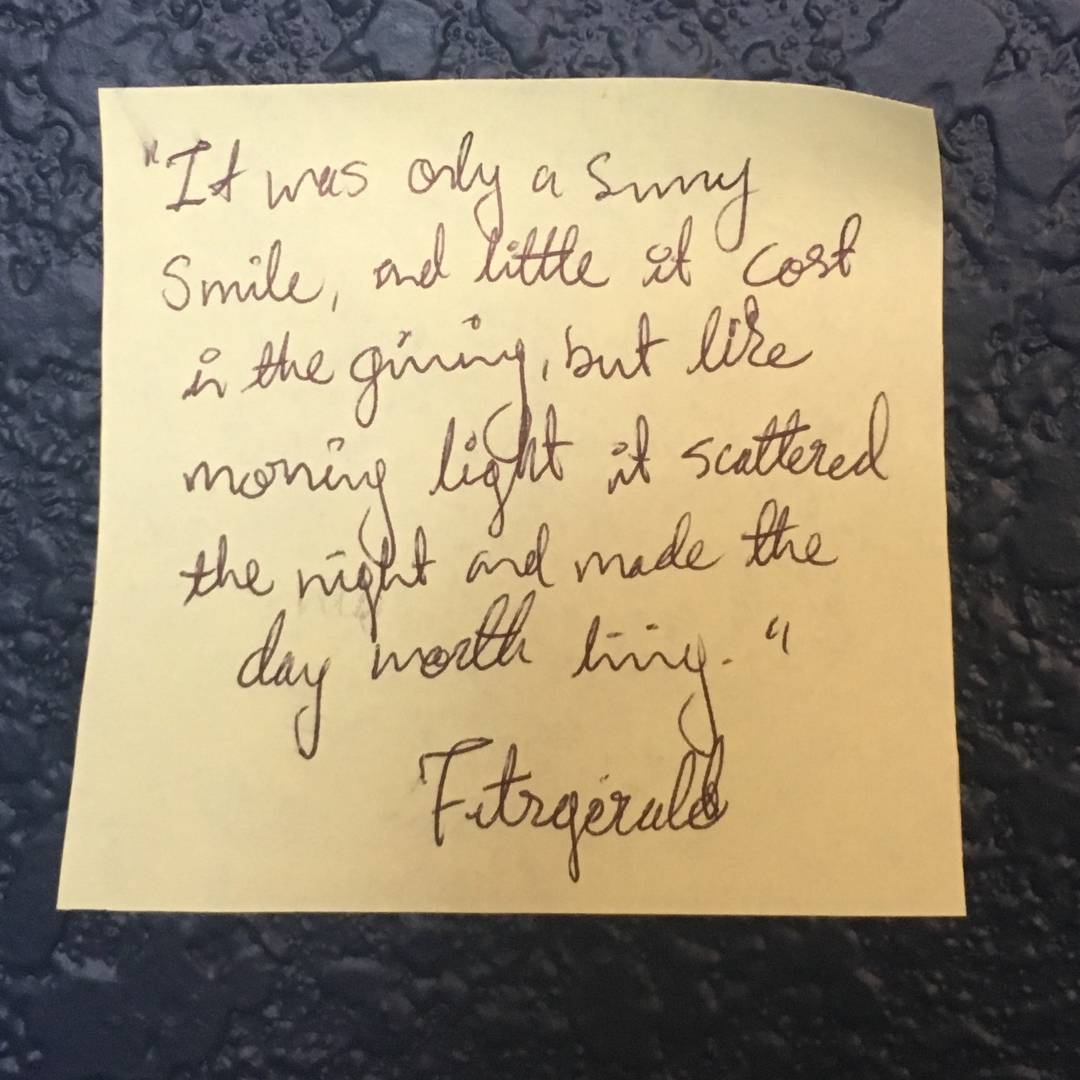 "It was only a sunny
smile, and little it cost
in the giving, but like
morning light it scattered
the night and made the
day worth living."
Fitzgerald